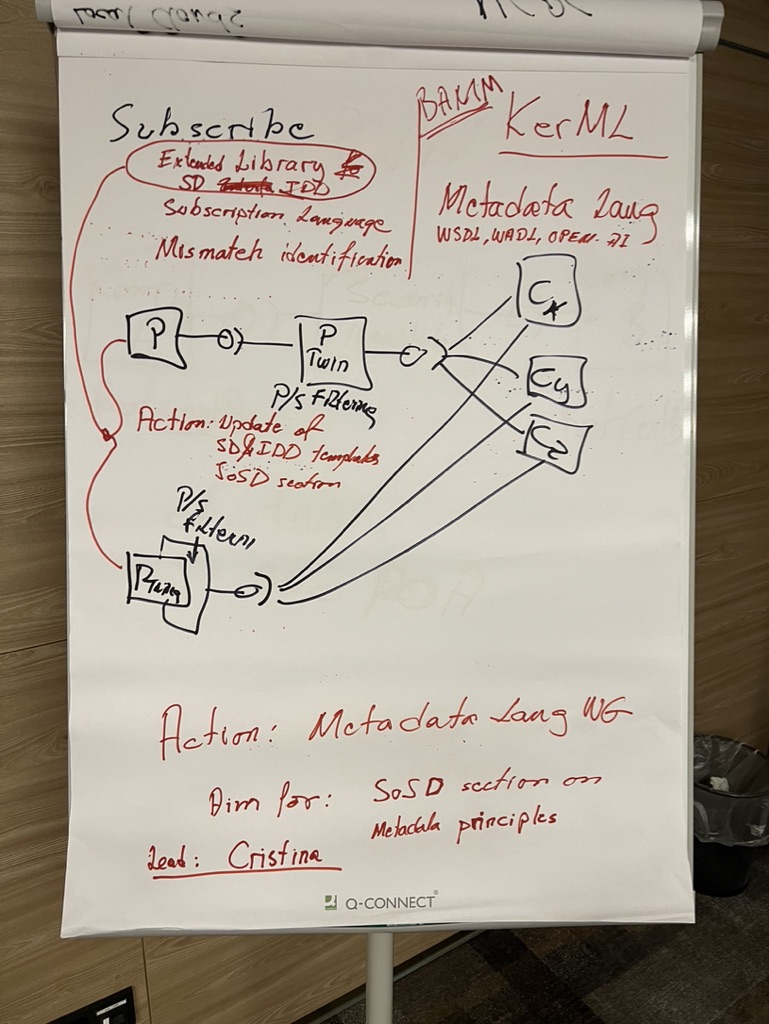 Local Clouds
Subscribe
Extended Library
SD IDD
Subscription Language
Mismatch identification
BAMM
KerML
Metadata Lang
WSDL, WADL, OPEN-AI
P
P
Twin
P/S Filtering
Cx
Cy
Cz
Action: Update of
SD&IDD templates
SoSD section
P/S
Action: Metadata Lang WG
Aim for: SoSD section on
Metadata principles
Lead: Cristina
Q-CONNECT®